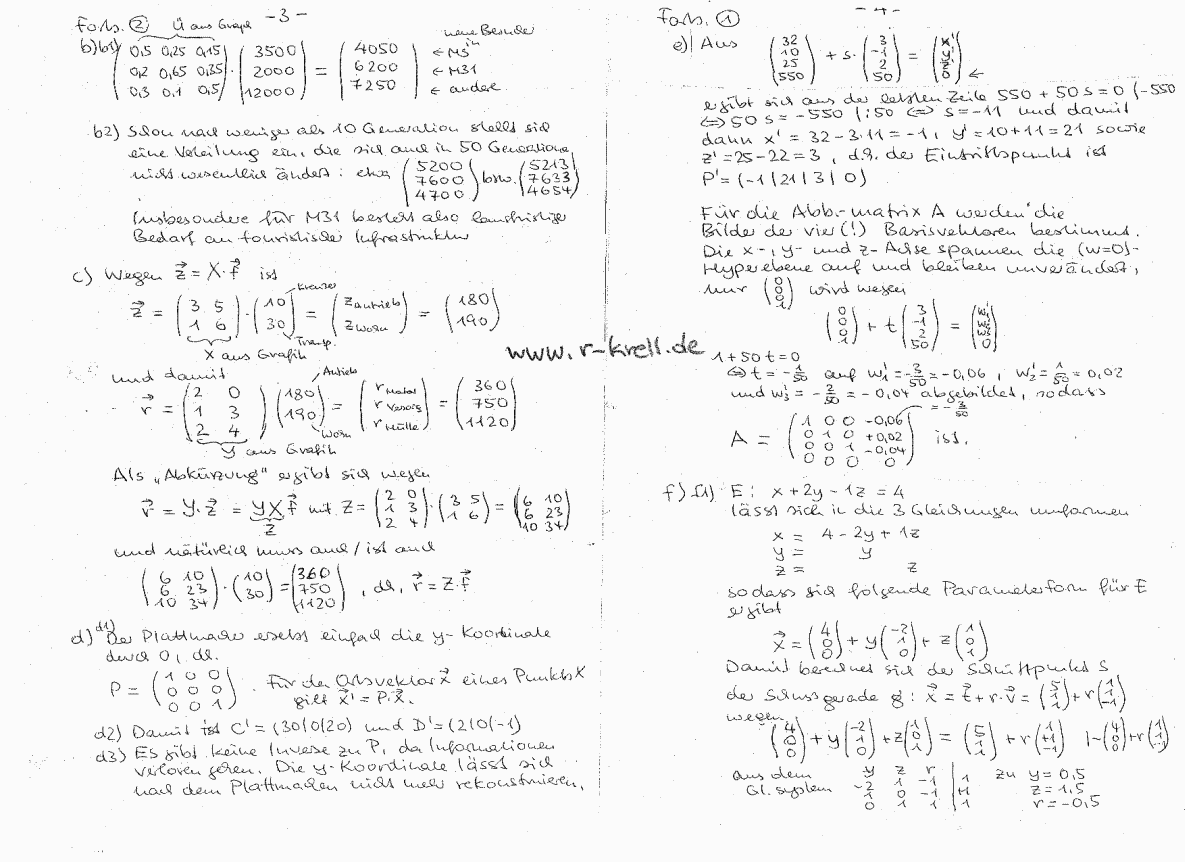 -3-
Forts. ② Ü aus Graph
neue Besucher in
b) b1) (0,5 0,25 0,15) (3500) (4050) ← M3
(0,2 0,65 0,35) · (2000) = (6200) ← M31
(0,3 0,1 0,5) (12000) (7250) ← andere
b2) Schon nach weniger als 10 Generation stellt sich
eine Verteilung ein, die sich auch in 50 Generationen
nicht wesentlich ändert: etwa (5200 7600 4700) bzw. (5213 7633 4654)
Insbesondere für M31 besteht also langfristiger
Bedarf an touristischer Infrastruktur
c) Wegen z⃗ = X·f⃗ ist
Kreuzer
z⃗ = (3 5) · (10) = (z Antrieb) = (180)
(1 6) (30) (z Wohn) (190)
Transp.
X aus Grafik
und damit
Antrieb
r⃗ = (2 0) (180) = (r Metall) = (360)
(1 3) (190) (r Versorg) (750)
(2 4) (r Müll) (1120)
Wohn
Y aus Grafik
Als „Abkürzung" ergibt sich wegen
r⃗ = Y·z⃗ = YX f⃗ mit Z = (2 0) · (3 5) = (6 10)
Z (1 3) (1 6) (6 23)
(2 4) (10 34)
und natürlich muss auch / ist auch
(6 10) (10) (360)
(6 23) · (30) = (750) , d.h. r⃗ = Z·f⃗
(10 34) (1120)
d) d1) Der Plattmacher ersetzt einfach die y-Koordinate
durch 0, d.h.
P = (1 0 0) . Für den Ortsvektor x⃗ eines Punkts X
(0 0 0) gilt x⃗' = P·x⃗.
(0 0 1)
d2) Damit ist C' = (30|0|20) und D' = (2|0|-1)
d3) Es gibt keine Inverse zu P, da Informationen
verloren gehen. Die y-Koordinate lässt sich
nach dem Plattmachen nicht mehr rekonstruieren.
www.r-krell.de
-4-
Forts. ①
e) Aus (32) (3) (x')
(10) + s· (-1) = (y')
(25) (2) (z')
(550) (50) (0) ←
ergibt sich aus der letzten Zeile 550 + 50 s = 0 |-550
⇔ 50 s = -550 |:50 ⇔ s = -11 und damit
dann x' = 32-3·11 = -1, y' = 10+11 = 21 sowie
z' = 25-22 = 3, d.h. der Eintrittspunkt ist
P' = (-1|21|3|0)
Für die Abb.-matrix A werden die
Bilder der vier (!) Basisvektoren bestimmt.
Die x-, y- und z-Achse spannen die (w=0)-
Hyperebene auf und bleiben unverändert,
nur (0 0 0 1) wird wegen
(0) (3) (w₁')
(0) + t (-1) = (w₂')
(0) (2) (w₃')
(1) (50) (0)
1+50t = 0
⇔ t = -1/50 auf w₁' = -3/50 = -0,06, w₂' = 1/50 = 0,02
und w₃' = -2/50 = -0,04 abgebildet, sodass
= -3/50
A = (1 0 0 -0,06)
(0 1 0 +0,02) ist.
(0 0 1 -0,04)
(0 0 0 0)
f) f1) E: x + 2y - 1z = 4
lässt sich in die 3 Gleichungen umformen
x = 4 - 2y + 1z
y = y
z = z
sodass sich folgende Parameterform für E
ergibt
x⃗ = (4 0 0) + y (-2 1 0) + z (1 0 1)
Damit berechnet sich der Schnittpunkt S
der Schussgerade g: x⃗ = t⃗ + r·v⃗ = (5 1 1) + r (1 1 -1)
wegen
(4 0 0) + y (-2 1 0) + z (1 0 1) = (5 1 1) + r (1 +1 -1) |-(4 0 0) + r (1 1 -1)
aus dem y z r
Gl. system -2 1 -1 | 1 zu y = 0,5
1 0 -1 | +1 z = 1,5
0 1 1 | 1 r = -0,5